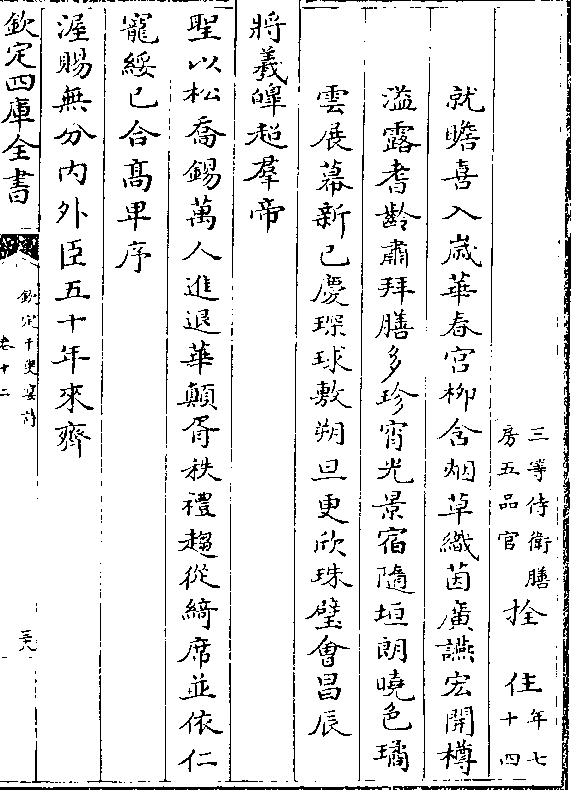 三等侍衛膳
房五品官
拴住
年七
十四
就瞻喜入嵗華春宫栁含烟草織茵廣讌宏開樽
溢露耆齡肅拜膳多珍宵光景宿隨垣朗曉色璚
雲展幕新已慶琛球敷朔旦更欣珠璧會昌辰
將羲皥超羣帝
聖以松喬錫萬人進退華顛胥秩禮趨從綺席並依仁
寵綏已合髙卑序
渥賜無分内外臣五十年來齊
欽定四庫全書
欽定千叟宴詩
卷十二